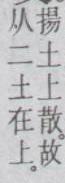 揚土上散。故
从二土在上。